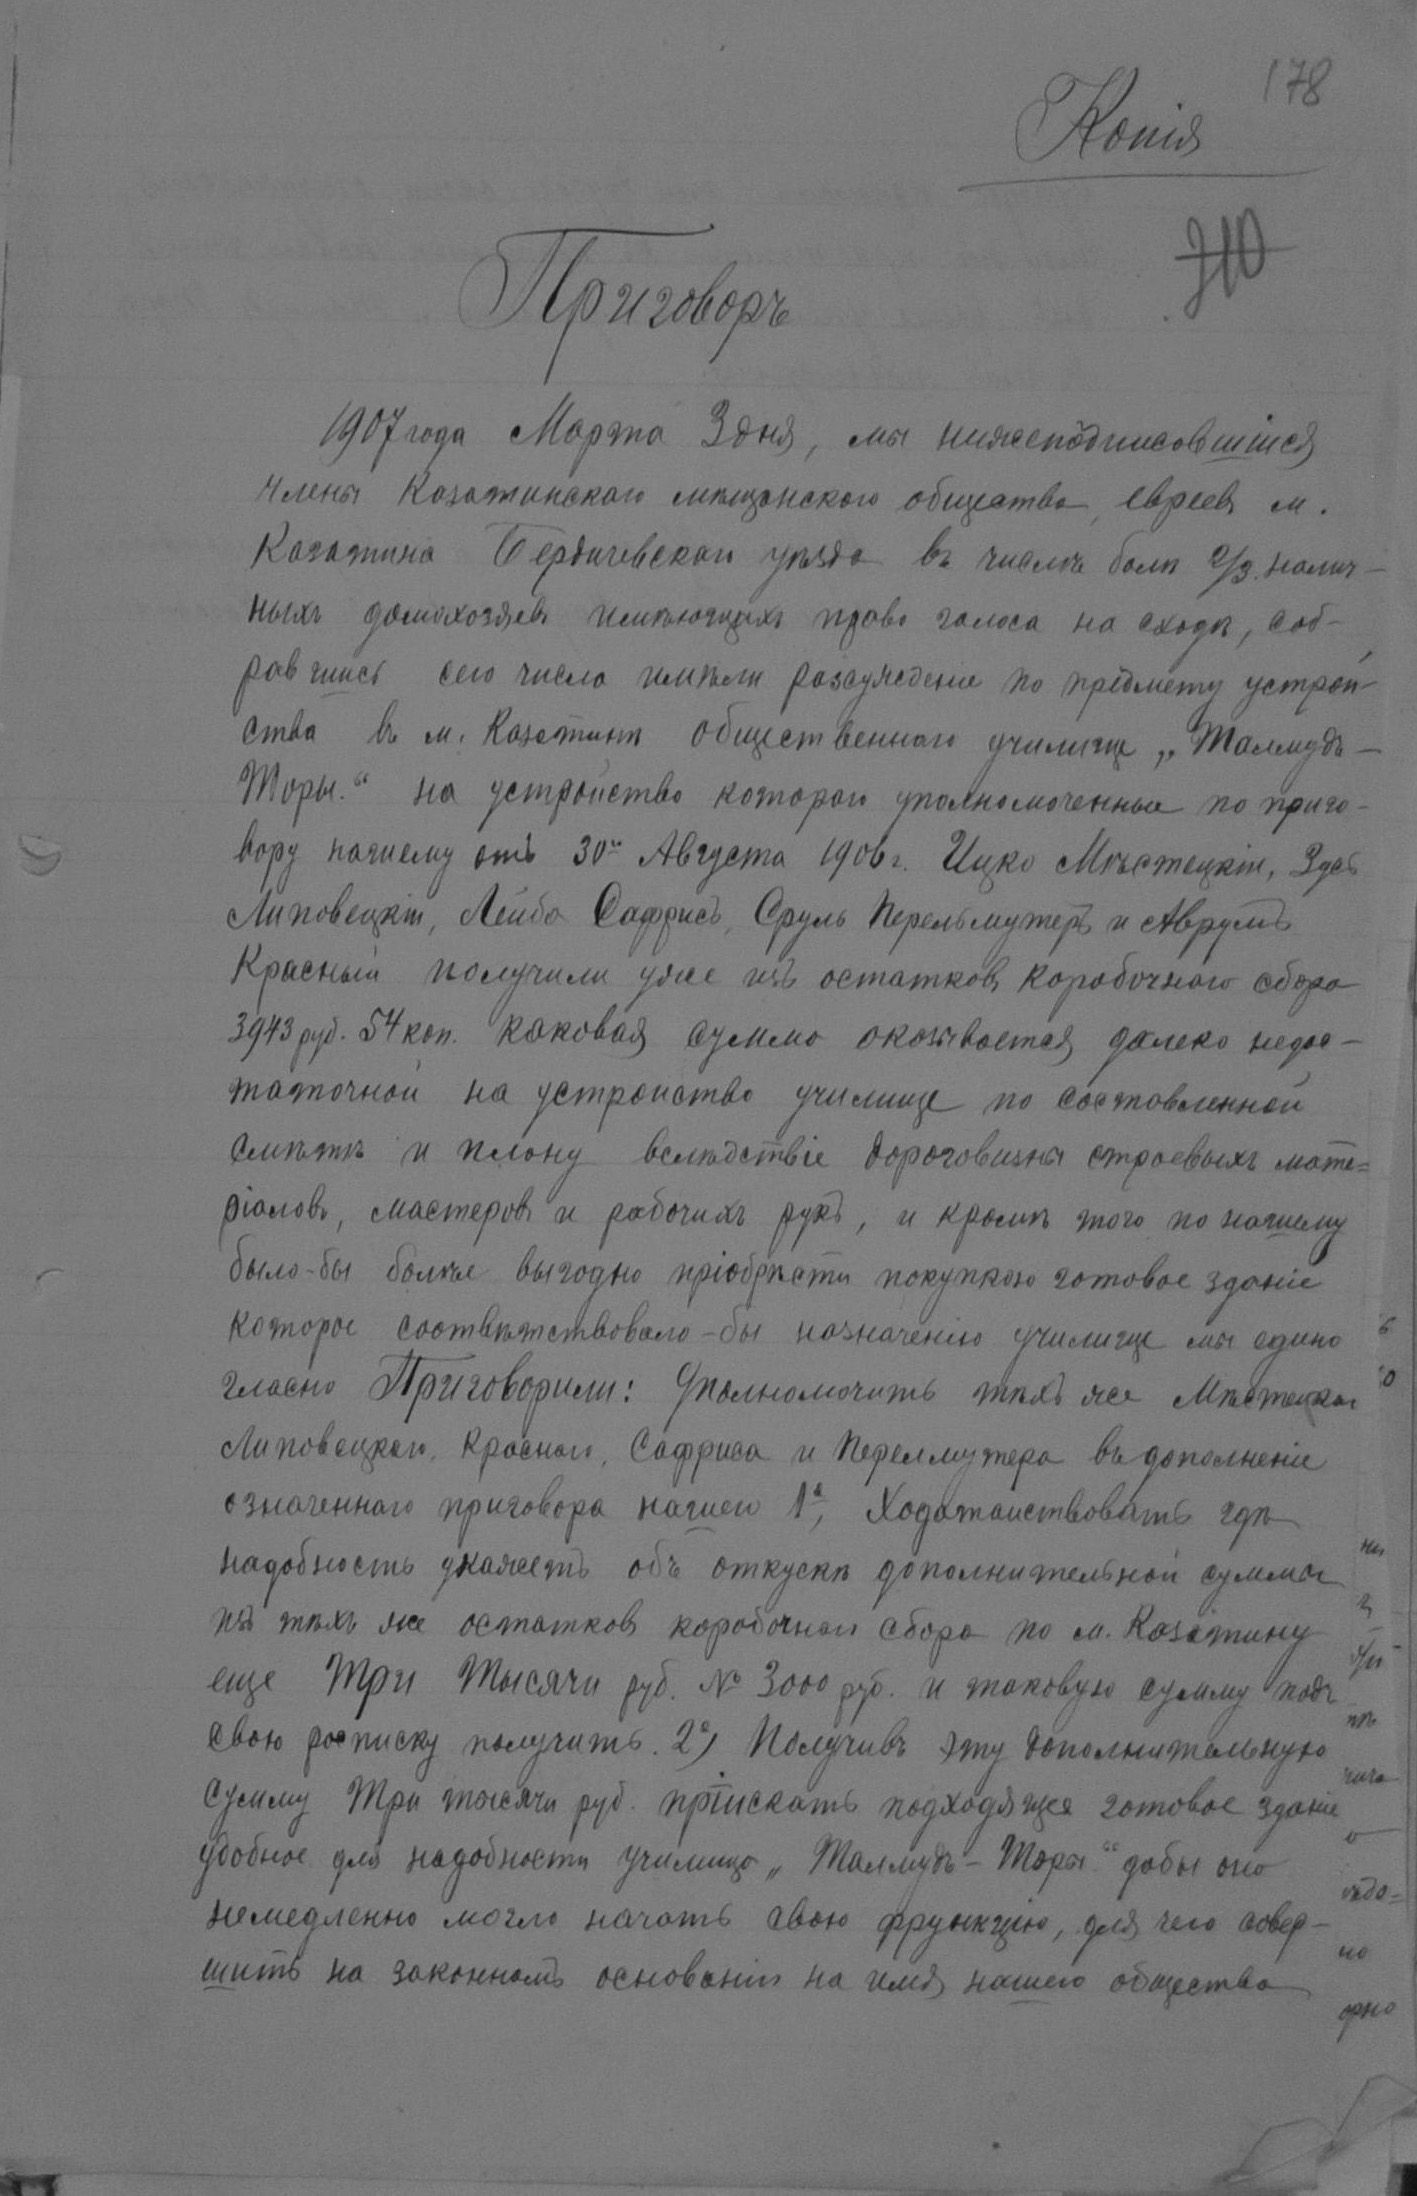 178
Копія
310
Приговоръ
1907 года Марта 3 дня, мы нижеподписавшіися
члены Козатинскаго мѣщанскаго общества, евреев м.
Казатина Бердичевскаго уѣзда въ числѣ болѣ 2/3 налич-
ныхъ домохозяевъ имѣющихъ право голоса на сходѣ, соб-
равшись сего числа имѣли разсужденіе по предмету устрой-
ства въ м. Козатинѣ общественнаго училища „Талмудъ-
Торы.“ на устройство котораго уполномоченные по приго-
вору нашему отъ 30го Августа 1906 г. Ицко Мѣстецкій,
Липовецкій, Лейба Саффисъ, Сруль Перельмутеръ и Аврумъ
Красный получили уже изъ остатковъ коробочнаго сбора
3943 руб. 54 коп. каковая сумма оказывается далеко недос-
таточной на устройство училища по составленной
смѣтѣ и плану вслѣдствіе дороговизны строевыхъ мате=
ріаловъ, мастеровъ и рабочихъ рукъ, и кромѣ того по нашему
было-бы болѣе выгодно пріобрѣсти покупкою готовое зданіе
которое соотвѣтствовало-бы назначенію училища мы едино
гласно Приговорили: Уполномочить тѣхъ же Мѣстецкаго
Липовецкаго, Краснаго, Саффиса и Перелмутера въ дополненіе
означеннаго приговора нашего 1е, Ходатайствовать гдѣ
надобность укажетъ объ откускѣ дополнительной суммы
изъ тѣхъ же остатковъ коробочнаго сбора по м. Козатину
еще Три Тысячи руб. № 3000 руб. и таковую сумму подъ
свою росписку получить. 2е) Получивъ эту дополнительную
сумму Три тысячи руб. пріискать подходящее готовое зданіе
удобное для надобности училища „Талмудъ-Торы“ дабы оно
немедленно могло начать свою функцію, для чего совер-
шить на законномъ основаніи на имя нашего общества